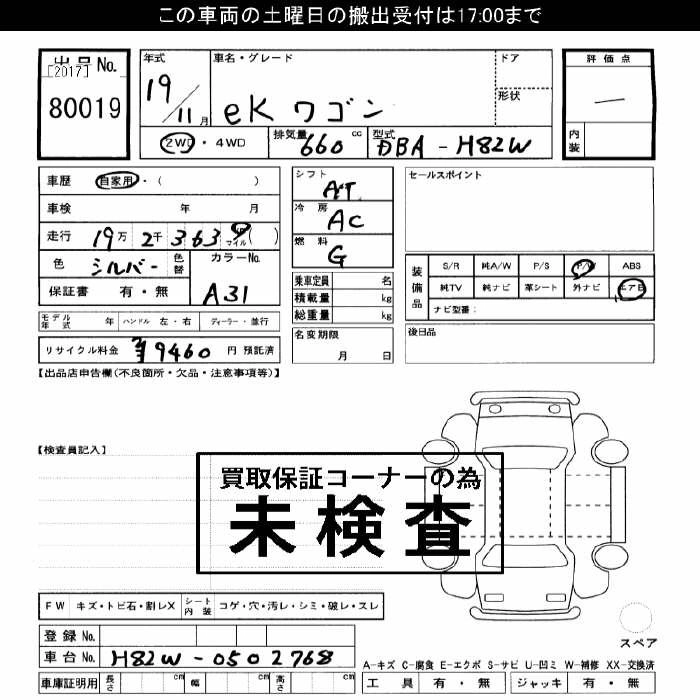 この車両の土曜日の搬出受付は17:00まで
出品No.
[2017]
80019
年式 19/11月
車名・グレード eKワゴン
ドア
形状
評価点
—
内装
2WD・4WD
排気量 660 cc
型式 DBA-H82W
車歴 自家用・( )
車検 年 月
走行 19万2千3639 マイル( )
色 シルバー 色替
カラーNo. A31
保証書 有・無
シフト AT
冷房 AC
燃料 G
乗車定員 名
積載量 kg
総重量 kg
名変期限 月 日
セールスポイント
装備品 S/R 純A/W P/S P/W ABS
純TV 純ナビ 革シート 外ナビ エアB
ナビ型番:
後日品
モデル年式 年 ハンドル 左・右 ディーラー・並行
リサイクル料金 ¥9460 円 預託済
【出品店申告欄(不良箇所・欠品・注意事項等)】
【検査員記入】
買取保証コーナーの為
未検査
FW キズ・トビ石・割レX シート内装 コゲ・穴・汚レ・シミ・破レ・スレ
登録No.
車台No. H82W-0502768
車庫証明用 長さ cm 幅 cm 高さ cm
スペア
A-キズ C-腐食 E-エクボ S-サビ U-凹ミ W-補修 XX-交換済
工具 有・無 ジャッキ 有・無